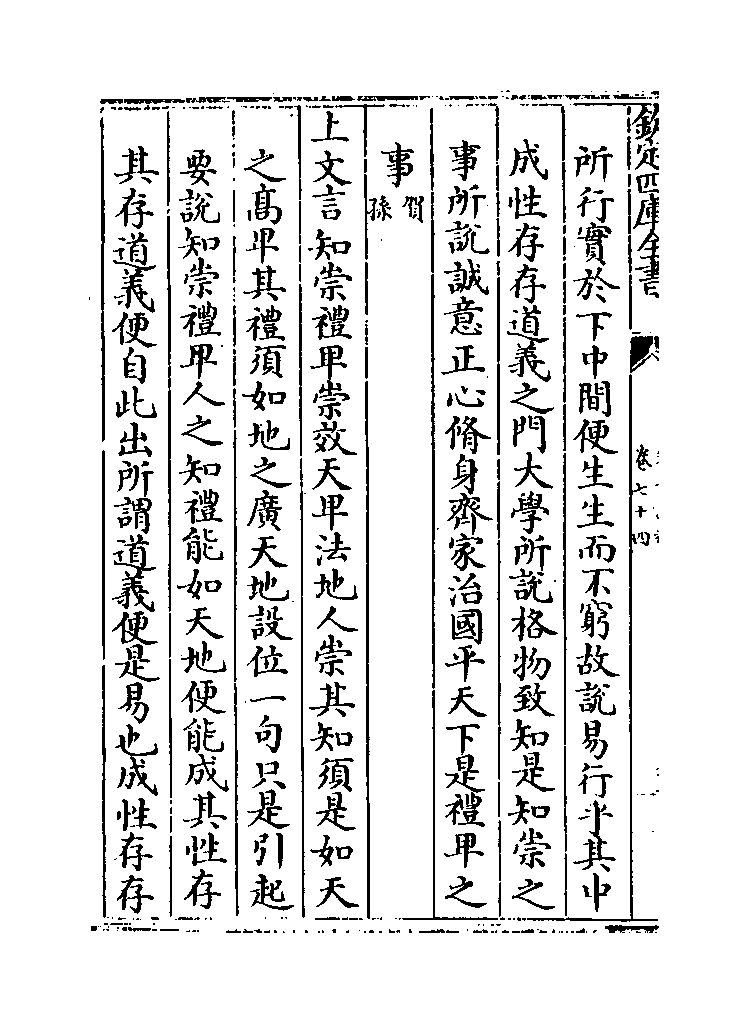 欽定四庫全書
卷七十四
所行實於下中間便生生而不窮故說易行乎其中
成性存存道義之門大學所說格物致知是知崇之
事所說誠意正心脩身齊家治國平天下是禮卑之
事賀孫
上文言知崇禮卑崇效天卑法地人崇其知須是如天
之髙卑其禮須如地之廣天地設位一句只是引起
要說知崇禮卑人之知禮能如天地便能成其性存
其存道義便自此出所謂道義便是易也成性存存